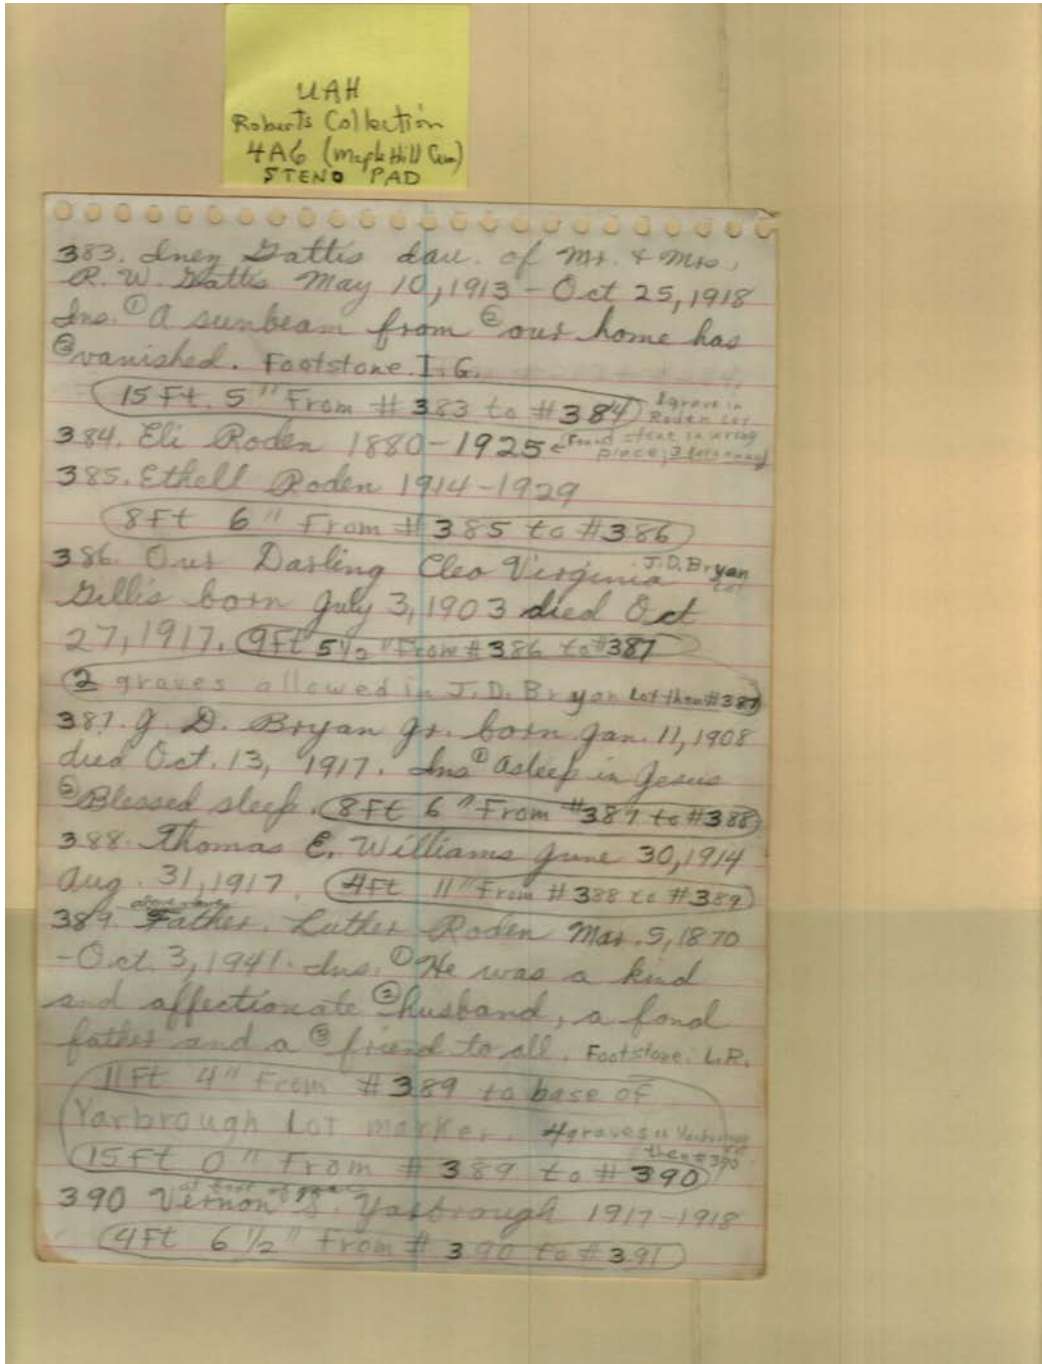 UAH
Roberts Collection
4A6 (Maple Hill Cem)
STENO PAD
383. Inez Gattis dau. of Mr. & Mrs.
R. W. Gattis May 10, 1913 - Oct 25, 1918
Ins. ① A sunbeam from ② our home has
③ vanished. Footstone. I. G.
15 Ft. 5" From # 383 to # 384
1 grave in
Roden Lot
384. Eli Roden 1880-1925
Found stone in wrong
place; 3 lots away
385. Ethell Roden 1914-1929
8 Ft 6" From # 385 to # 386
386. Our Darling Cleo Virginia
J.D. Bryan
Lot
Gillis born July 3, 1903 died Oct
27, 1917. 9 Ft 5 1/2" From # 386 to # 387
2 graves allowed in J. D. Bryan Lot then # 387
387. J. D. Bryan Jr. born Jan. 11, 1908
died Oct. 13, 1917. Ins ① Asleep in Jesus
② Blessed sleep. 8 Ft 6" From # 387 to # 388
388. Thomas E. Williams June 30, 1914
Aug. 31, 1917. 4 Ft 11" From # 388 to # 389
above
389. Father. Luther Roden Mar. 5, 1870
- Oct. 3, 1941. Ins. ① He was a kind
and affectionate ② husband, a fond
father and a ③ friend to all. Footstone: L.R.
11 Ft 4" From # 389 to base of
Yarbrough Lot marker. 4 graves in Yarbrough
then # 390
15 Ft 0" From # 389 to # 390
at foot of
390 Vernon S. Yarbrough 1917-1918
4 Ft 6 1/2" From # 390 to # 391